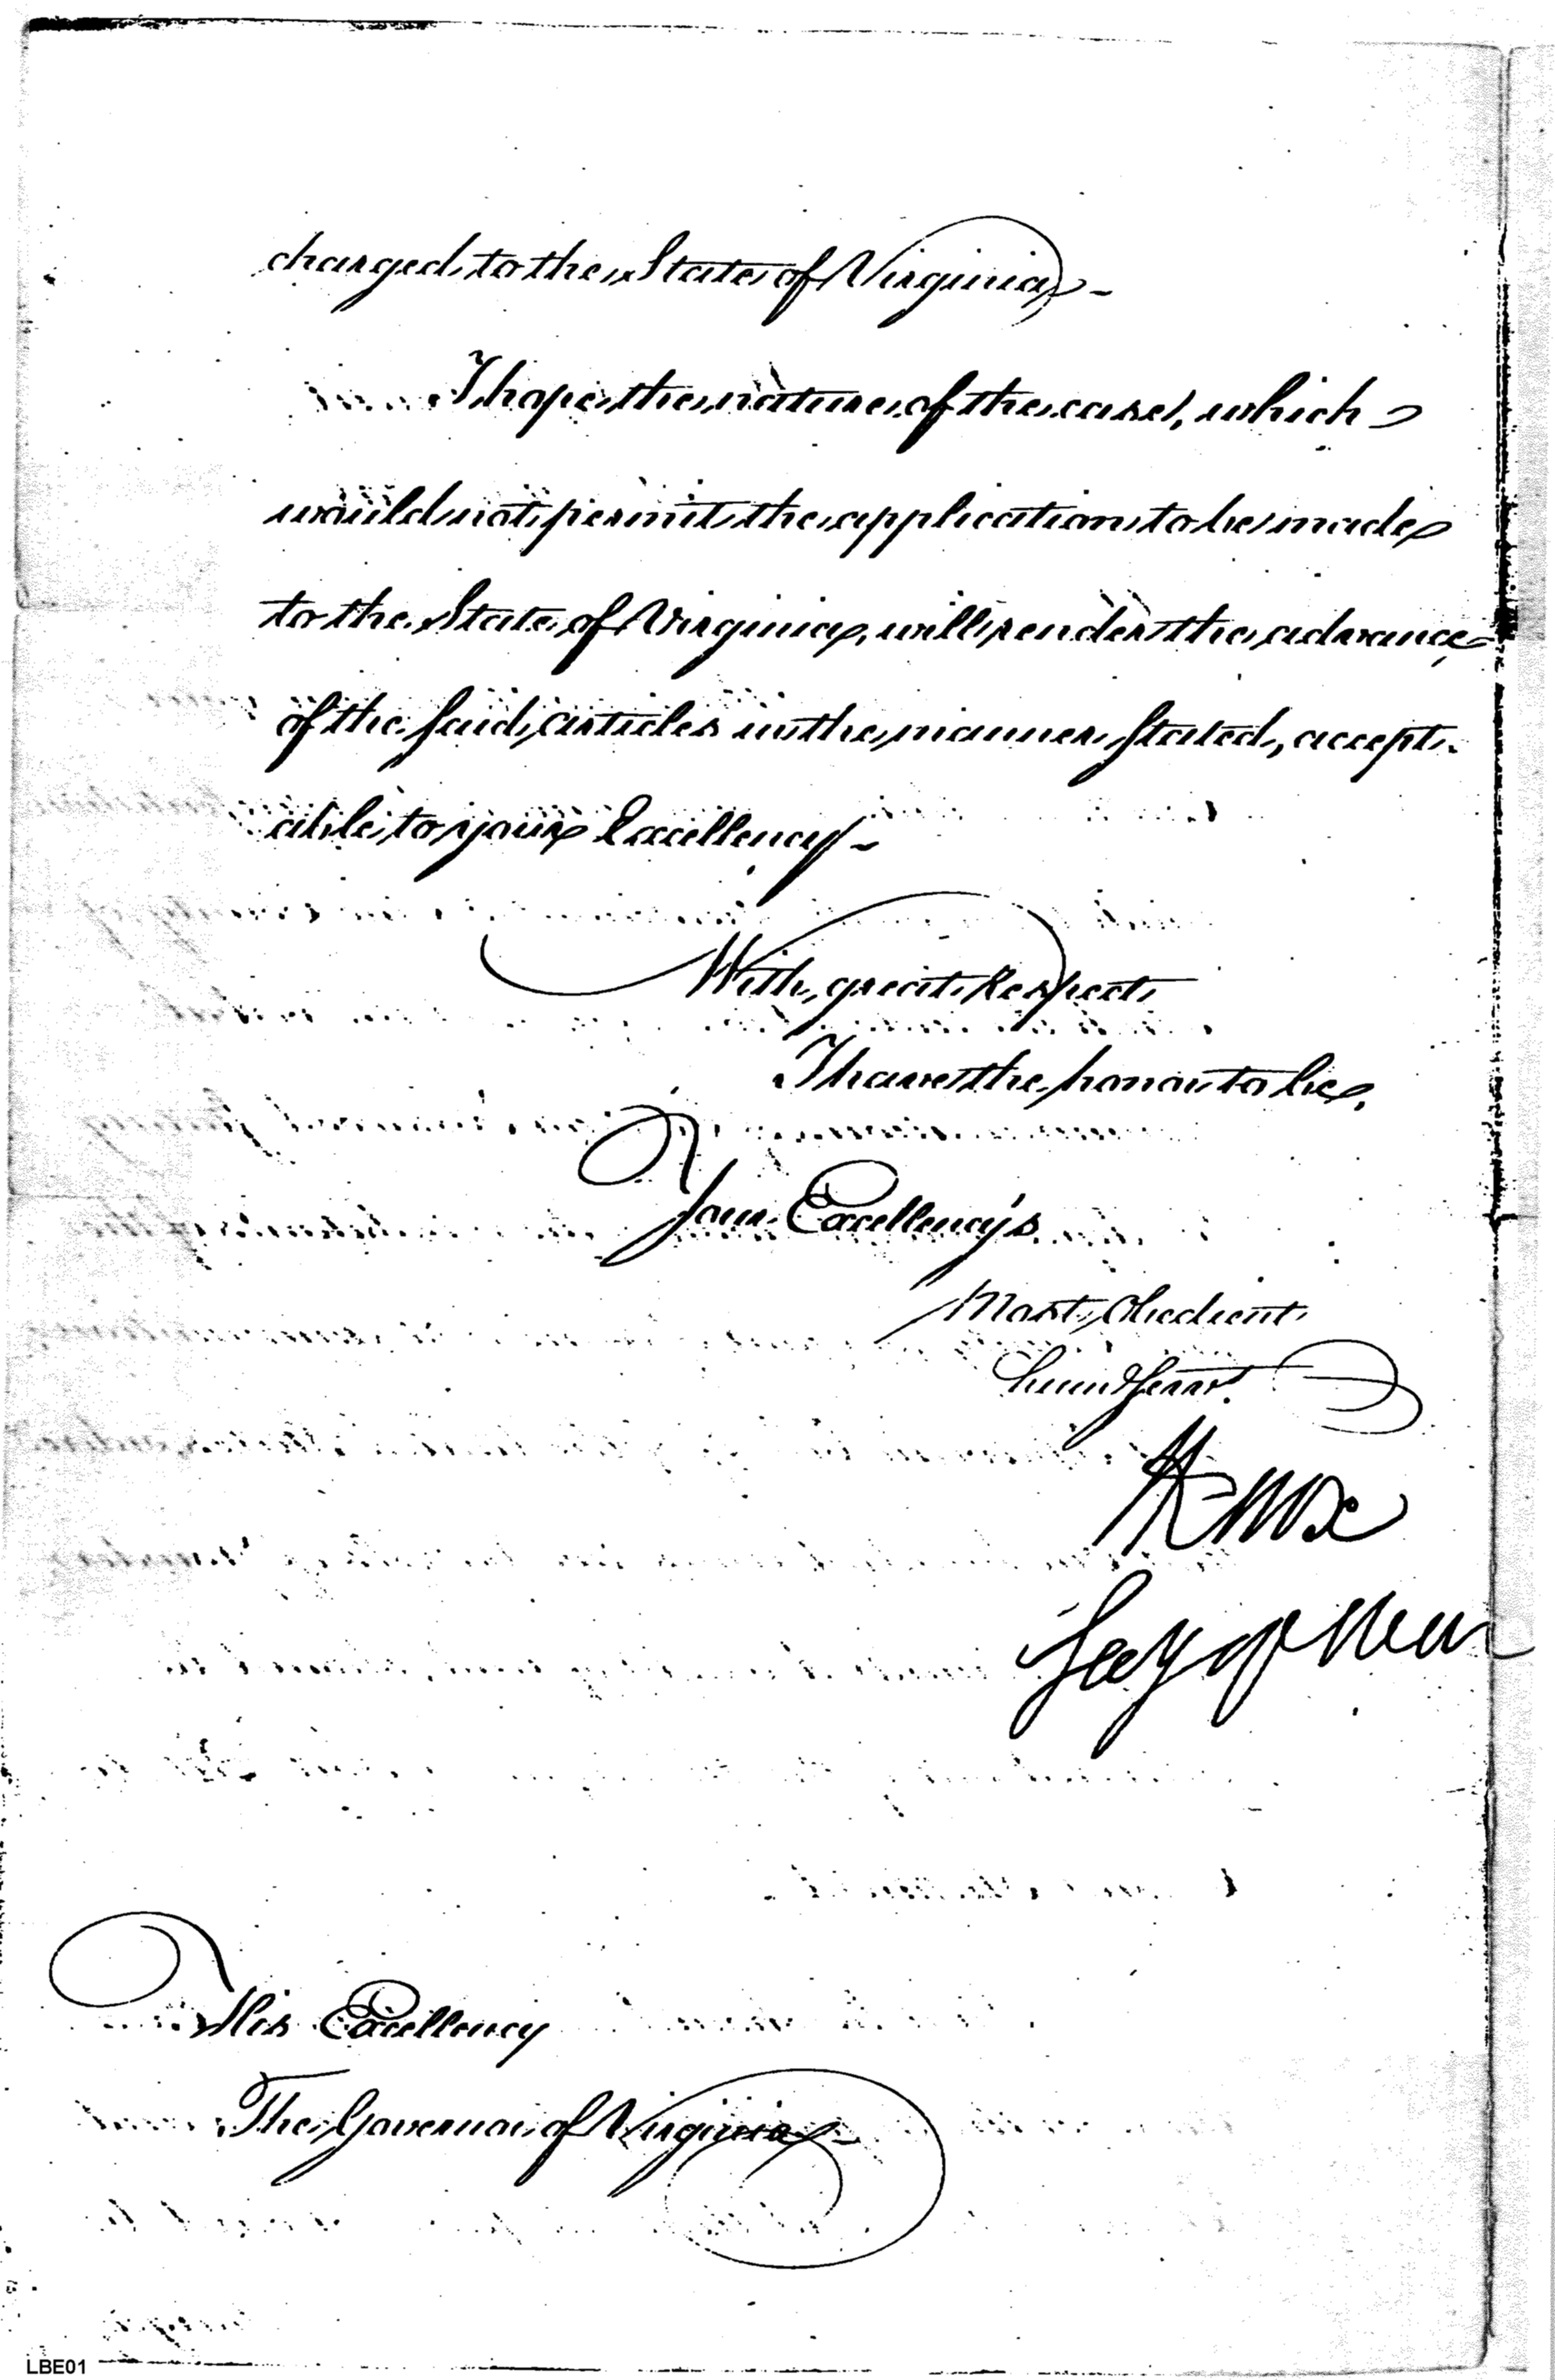 charged to the State of Virginia -
I hope the nature of the case, which
would not permit the application to be made
to the State of Virginia, will render the advance
of the said articles in the manner stated, accept-
able to your Excellency -
With great Respect
I have the honor to be,
Your Excellency's
Most Obedient
Hum Servt.
H Knox
Secy of War
His Excellency
The Governor of Virginia -
LBE01